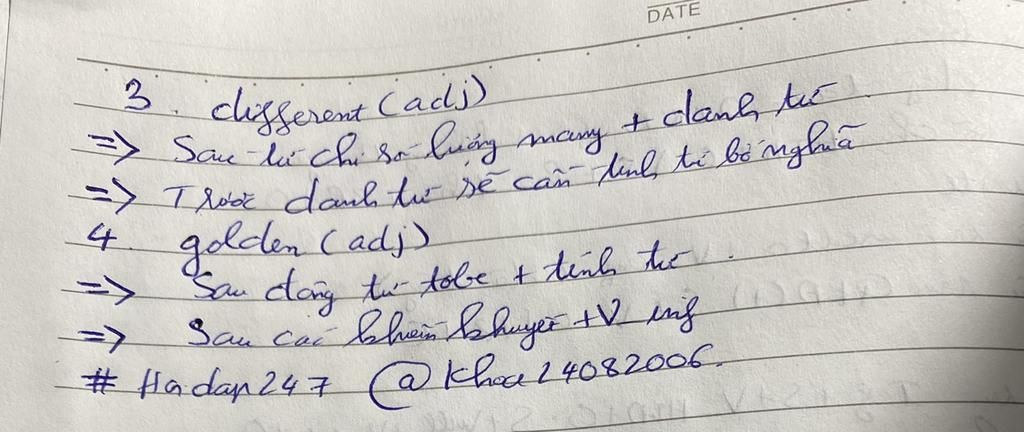 DATE
3. different (adj)
=> Sau từ chỉ số lượng many + danh từ
=> Trước danh từ sẽ cần tính từ bổ nghĩa
4. golden (adj)
=> Sau động từ tobe + tính từ.
=> Sau các khiếm khuyết + V ing
# Hoidap247 @khoa24082006.